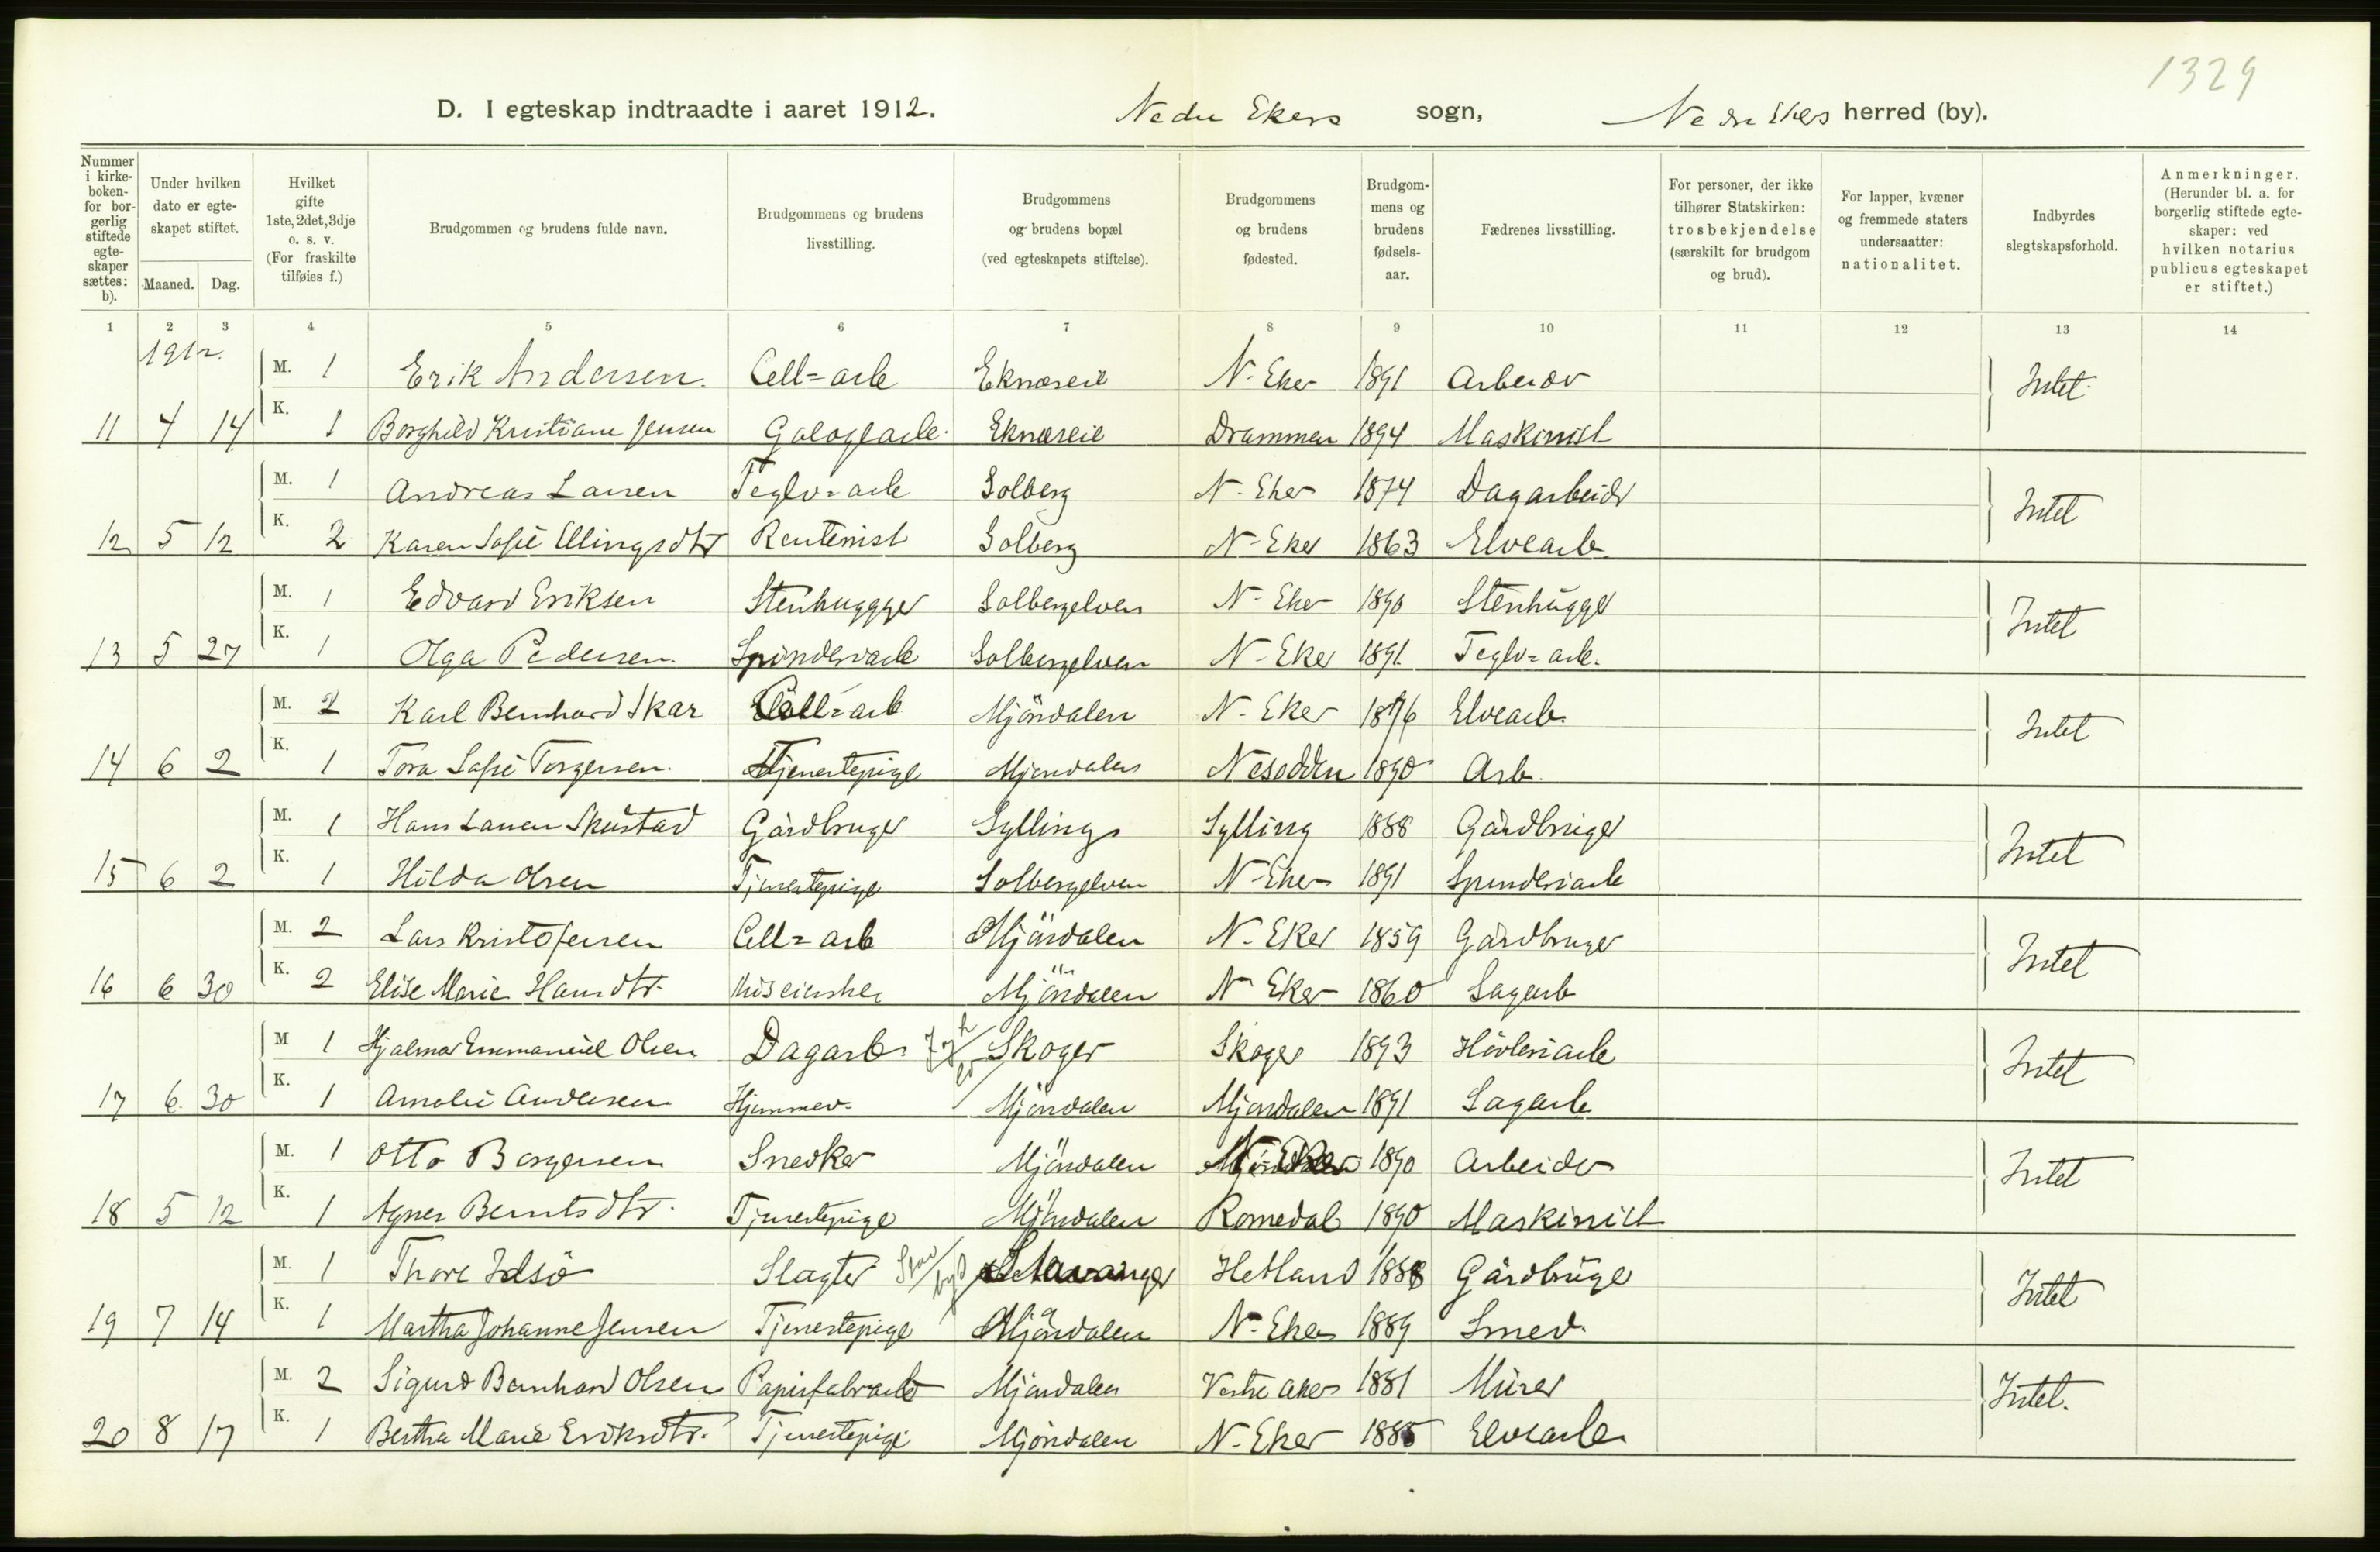 1329
D. I egteskap indtraadte i aaret 1912. Nedre Ekers sogn, Nedre Ekers herred (by).
Nummer i kirkeboken- for borgerlig stiftede egteskaper sættes: b). Under hvilken dato er egteskapet stiftet. Maaned. Dag. Hvilket gifte 1ste, 2det, 3dje o. s. v. (For fraskilte tilføies f.) Brudgommen og brudens fulde navn. Brudgommens og brudens livsstilling. Brudgommens og brudens bopæl (ved egteskapets stiftelse). Brudgommens og brudens fødested. Brudgommens og brudens fødselsaar. Fædrenes livsstilling. For personer, der ikke tilhører Statskirken: trosbekjendelse (særskilt for brudgom og brud). For lapper, kvæner og fremmede staters undersaatter: nationalitet. Indbyrdes slegtskapsforhold. Anmerkninger. (Herunder bl. a. for borgerlig stiftede egteskaper: ved hvilken notarius publicus egteskapet er stiftet.)
1 2 3 4 5 6 7 8 9 10 11 12 13 14
1912.
M. 1 Erik Andersen. Cell=arb Eknæseie N-Eker 1891 Arbeider Intet
11 4 14 K. 1 Borghild Kristiane Jensen Eknæseie Drammen 1894 Maskinist
M. 1 Andreas Larsen Teglv=arb Solberg N-Eker 1874 Dagarbeider Intet
12 5 12 K. 2 Karen Sofie Ellingsdtr Rentenist Solberg N-Eker 1863 Elvearb
M. 1 Edvard Eriksen Stenhuggger Solbergelven N-Eker 1890 Stenhugger Intet
13 5 27 K. 1 Olga Pedersen. Spinderiarb Solbergelven N-Eker 1891 Teglv=arb.
M. 2 Karl Bernhard Skar Cell=arb Mjöndalen N-Eker 1876 Elvearb. Intet
14 6 2 K. 1 Tora Sofie Torgersen. Tjenestepige Mjøndalen Nesodden 1890 Arb.
M. 1 Hans Larsen Skustad Gårdbruger Syllings Sylling 1888 Gårdbruger Intet
15 6 2 K. 1 Hilda Olsen Tjenestepige Solbergelven N-Eker 1891 Spinderiarb
M. 2 Lars Kristofersen Cell=arb Mjöndalen N-Eker 1859 Gårdbruger Intet
16 6 30 K. 2 Elise Marie Hansdtr. Huseierske Mjöndalen N Eker 1860 Sagarb
M 1 Hjalmar Emmanuel Olsen Dagarb. Skoger Skoger 1893 Høvleriarb Intet
17 6. 30 K. 1 Amalie Andersen Hjemmev. Mjöndalen Mjøndalen 1891 Sagarb.
M. 1 Otto Borgersen Snedker Mjöndalen N-Eker 1890 Arbeider Intet
18 5 12 K. 1 Agnes Berntsdtr. Tjenestepige Mjöndalen Romedal 1890 Maskinist
M. 1 Thore Idsö Slagter Stavanger Hetland 1888 Gårdbruger Intet
19 7 14 K. 1 Martha Johanne Jensen Tjenestepige Mjöndalen N-Eker 1889 Smed
M. 2 Sigurd Bernhard Olsen Papirfabrarb Mjøndalen Vestre Aker 1881 Murer Intet.
20 8 17 K. 1 Bertha Marie Eriksdtr. Tjenestepige Mjøndalen N-Eker 1885 Elvearb